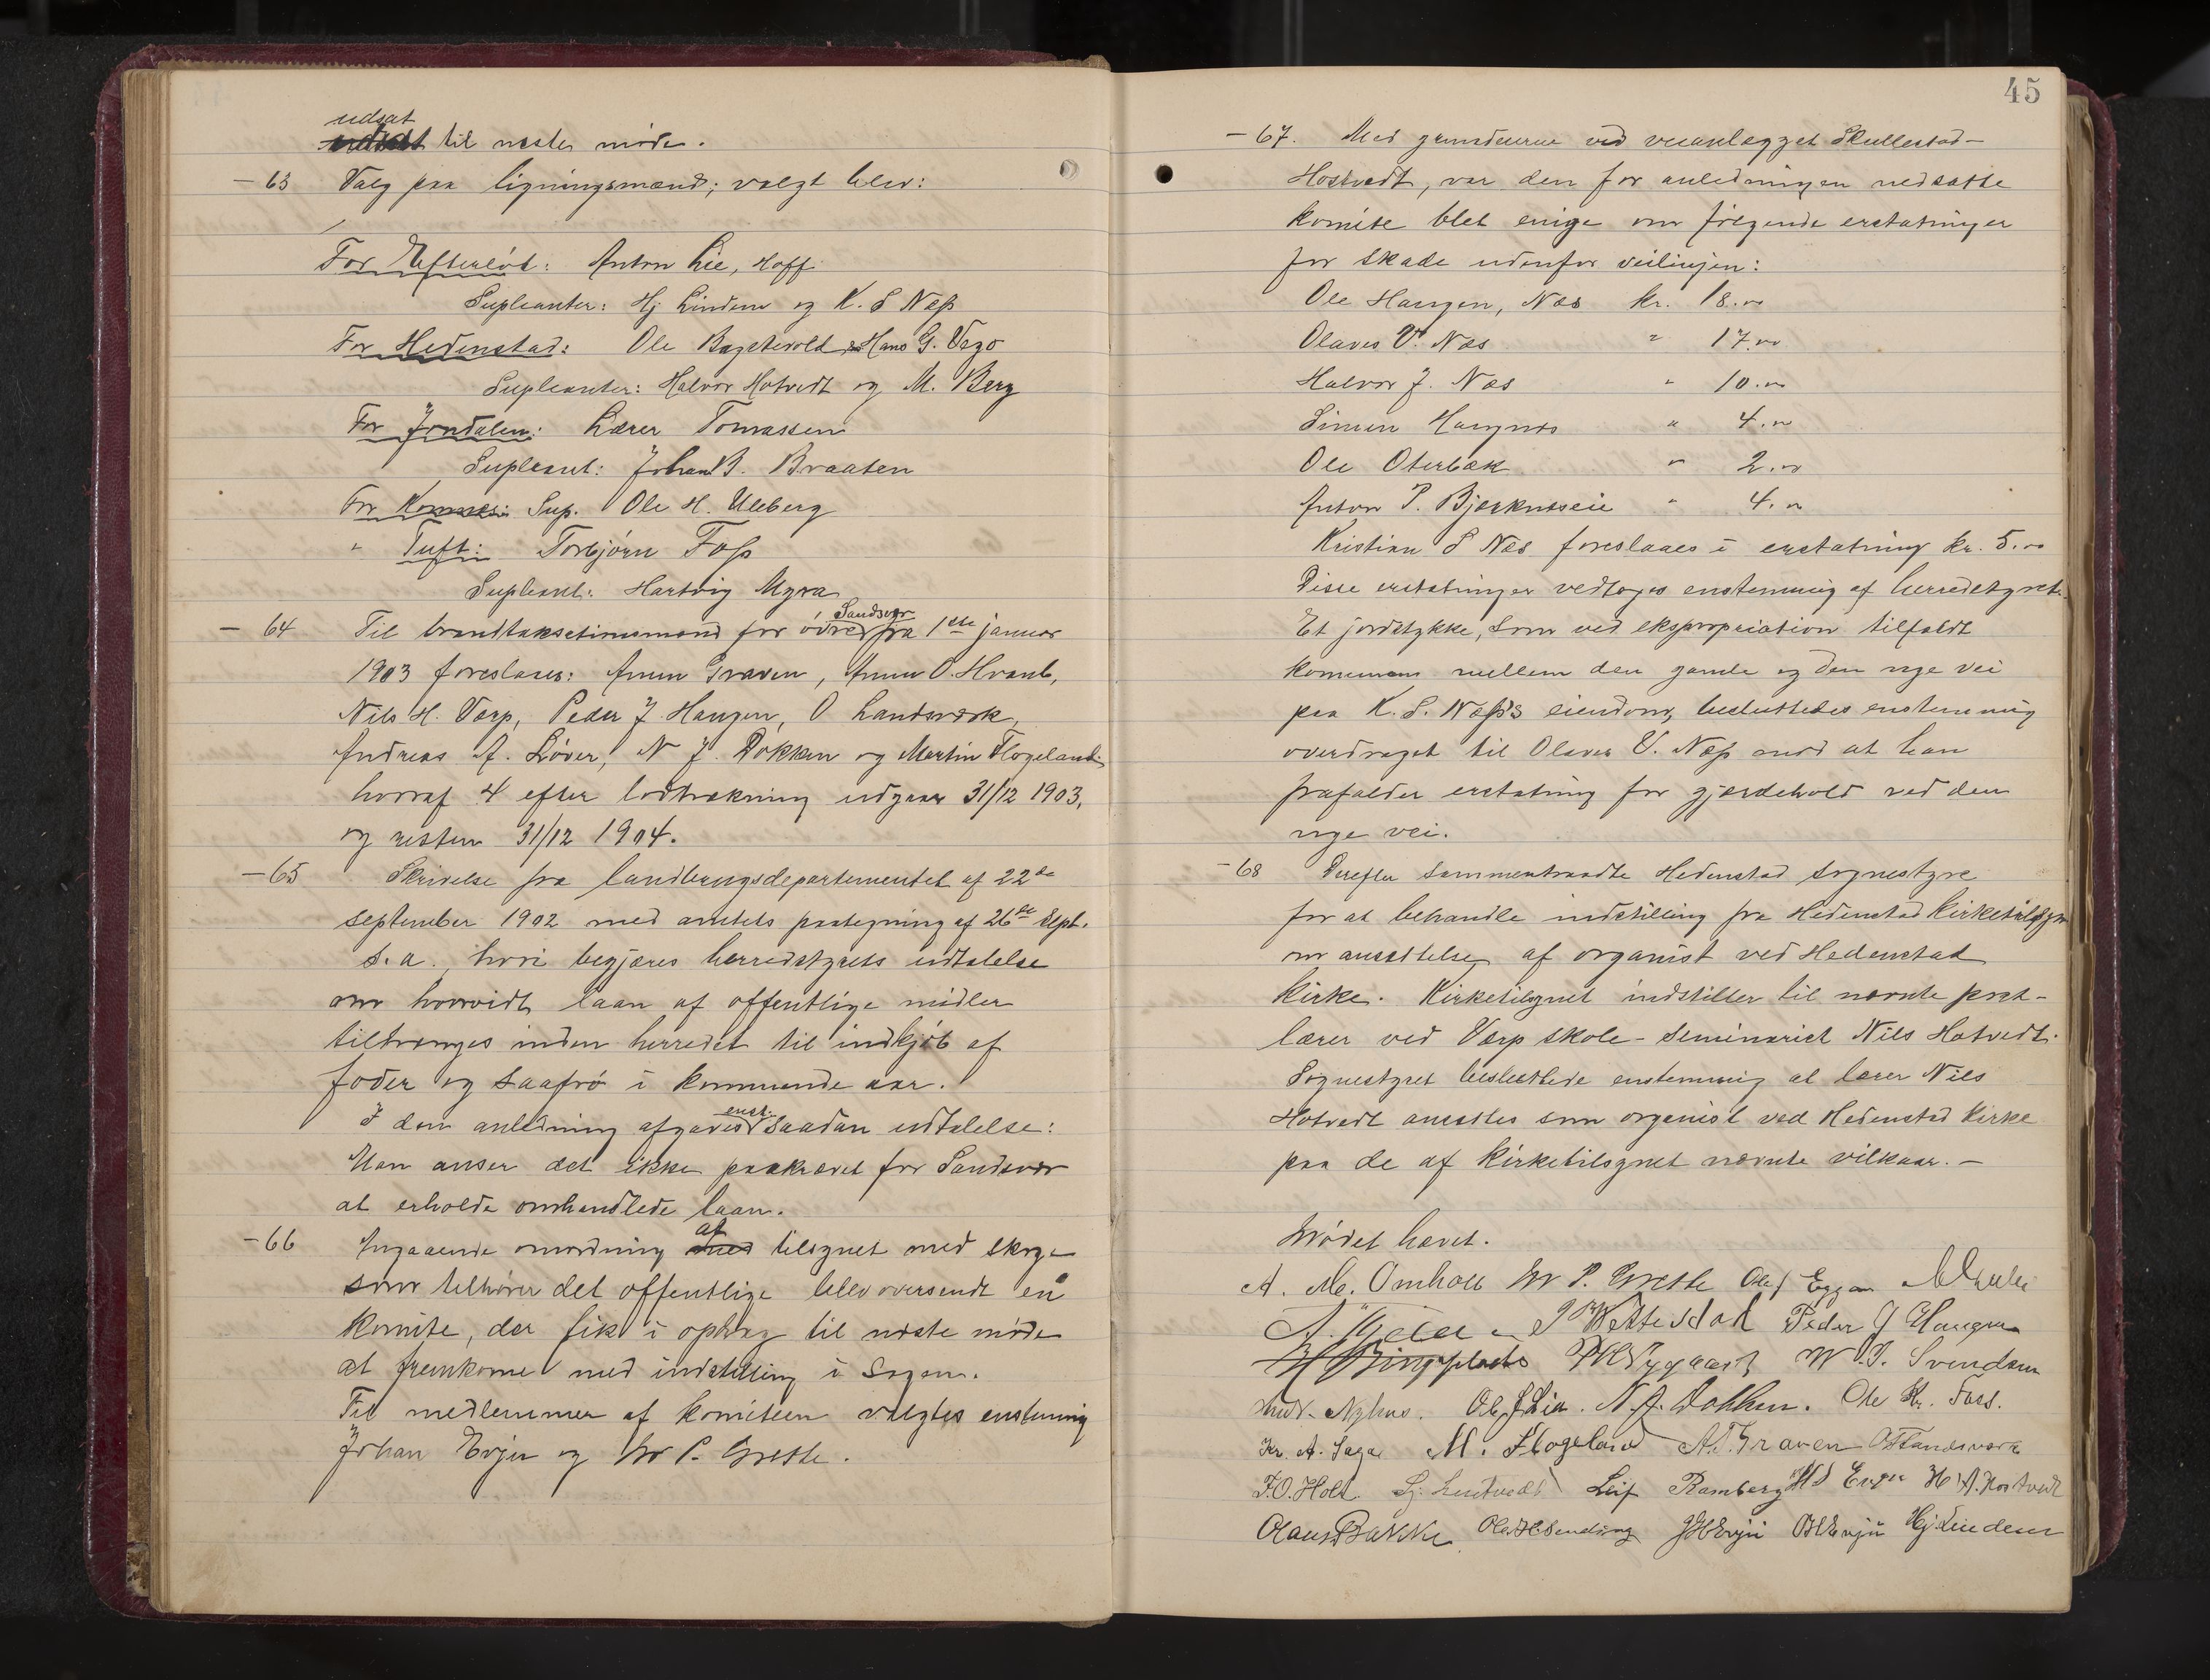 udsat
til næste møde.
- 63 Valg paa ligningsmænd; valgt blev:
For Efterløt: Anton Lie, Hoff
Supleanter: Hj Linden og K. S Næss
For Hedenstad: Ole Bagstevold Hans G. Vego
Supleanter: Halvor Hotvedt og M. Berg
For Jondalen: Lærer Tomassen
Supleant: Johan B. Braaten
For Komnes: Sup. Ole H. Ulleberg
" Tuft: Torbjørn Foss
Supleant: Hartvig Myra
Sandsvær
- 64 Til brandtakstationsmænd for øvre fra 1ste januar
1903 foreslaaes: Amun Graven, Amun O. Hvamb,
Nils H. Varp, Peder J. Haugen, O Landsværk,
Andreas A. Løver, N J. Dokken og Martin Flogeland
hvoraf 4 efter lodtrækning udgaar 31/12 1903,
og resten 31/12 1904.
- 65 Skrivelse fra landbrugsdepartementet af 22de
september 1902 med amtets paategning af 26de Sept.
s.a., hvori begjæres herredstyrets udtalelse
om hvorvidt laan af offentlige midler
tiltrænges inden herredet til indkjøb af
foder og saafrø i kommende aar.
enst.
I den anledning afgaves saadan udtalelse:
Man anser det ikke paakrævet for Sandsvær
at erholde omhandlede laan.
af
- 66 Angaaende omordning med tilsynet med skoge
som tilhører det offentlige blev oversendt en
komite, der fik i opdrag til næste møde
at fremkomme med indstilling i Sagen.
Til medlemmer af komiteen valgtes enstemmig
Johan Evju og M P. Grette.
45
- 67. Med grundeierne ved veianlægget Skullestad-
Hostvedt, var den for anledningen nedsatte
komite blet enige om følgende erstatninger
for skade udenfor veilinjen:
Ole Haugen, Næs kr. 18.00
Olaves V. Næs " 17.00
Halvor J. Næs " 10.00
Simen Haugnæs " 4.00
Ole Oterbæk " 2.00
Anton P. Bjørknæseie " 4.00
Kristian S Næs foreslaaes i erstatning kr. 5.00
Disse erstatninger vedtoges enstemmig af herredstyret.
Et jordstykke, som ved ekspropriation tilfaldt
kommunen mellem den gamle og den nye vei
paa K. S. Næss's eiendom, besluttedes enstemmig
overdraget til Olaves V. Næss mod at han
frafalder erstatning for gjærdehold ved den
nye vei.
- 68 Derefter sammentraadte Hedenstad sognestyre
for at behandle indstilling fra Hedenstad kirketilsyn
om ansættelse af organist ved Hedenstad
kirke. Kirketilsynet indstiller til nævnte post -
lærer ved Varp skole - Seminarist Nils Hotvedt.
Sognestyret besluttede enstemmig at lærer Nils
Hotvedt ansættes som organist ved Hedenstad kirke
paa de af kirketilsynet nævnte vilkaar. -
Mødet hævet.
A. M. Omholt M P. Grette Ole J Eggar
P Wettestad Peder J Haugen
H Bingeplads P Nygaard W. T. Svendsen
And. Nyhus. Ole J Lia. N. J. Dokken. Ole Kr. Foss.
Kr. A. Saga M. Flogeland A. T. Graven O T Landsværk
T. O. Holt. Leif Ramberg H S Enger H A. Hostvedt
Olaus Bakke Ole H. Sending J H Evju O H Evju Hj. Linden